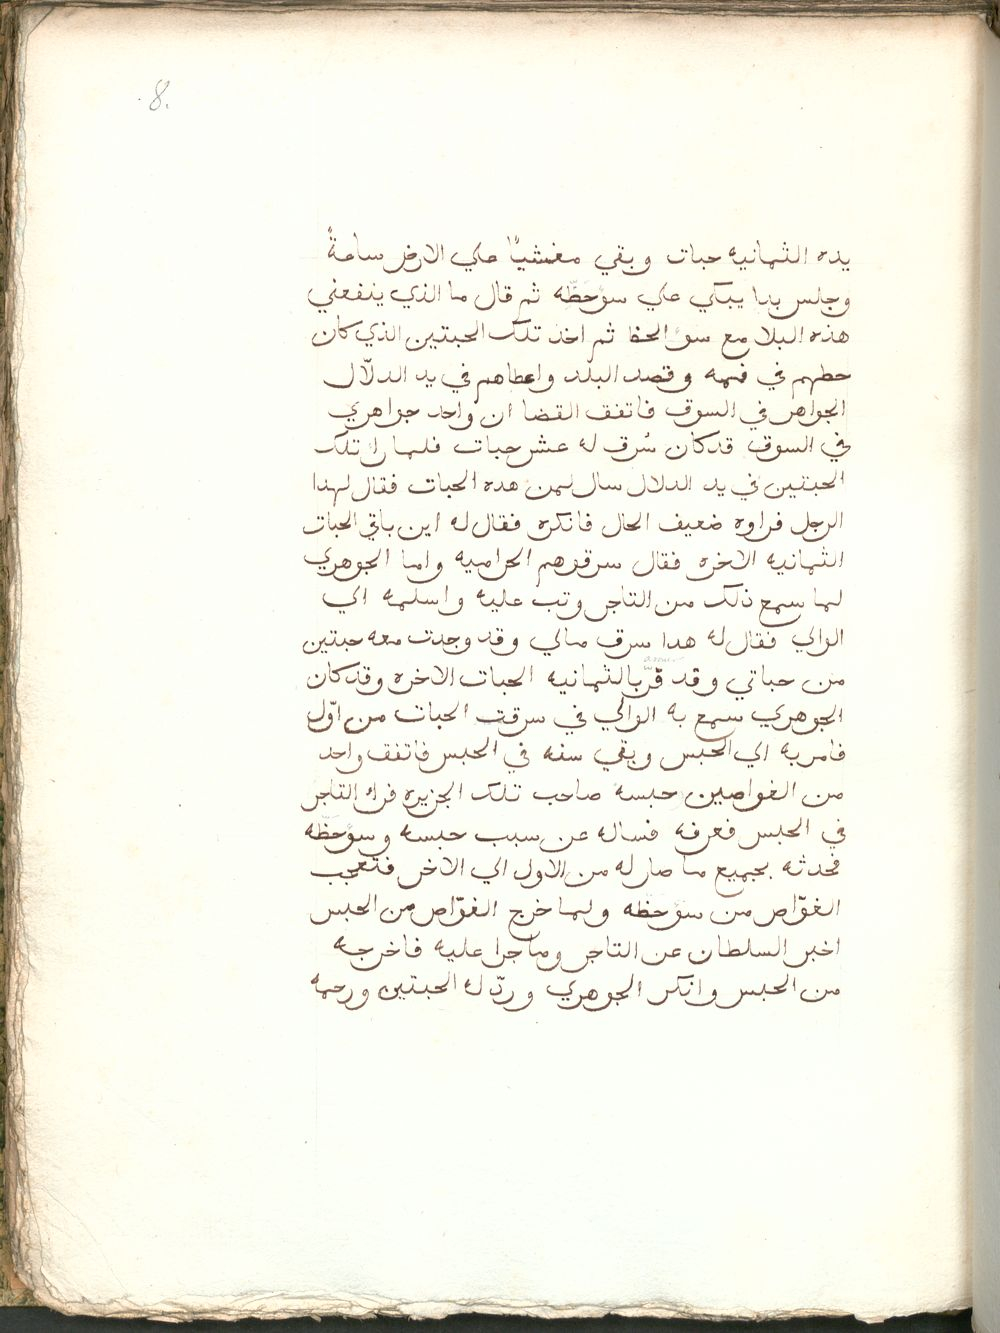 8.
يده الثمانيه حبات وبقي مغشيًا علي الارض ساعةً
وجلس بدا يبكي علي سوحظّه ثم قال ما الذي ينفعني
هذه البلا مع سو الحظ ثم اخذ تلك الحبتين الذي كان
حطهم في فمه وقصد البلد واعطاهم في يد الدلّال
الجواهر في السوق فاتفق القضا ان واحد جواهري
في السوق قد كان سُرق له عشر حبات فلما را تلك
الحبتين في يد الدلال سال لمن هده الحبات فقال لهدا
الرجل فراوه ضعيف الحال فانكره فقال له اين باقي الحبات
الثمانيه الاخره فقال سرقوهم الحراميه واما الجوهري
لما سمع ذلك من التاجر وتب عليه واسلمه الي
الوالي فقال له هدا سرق مالي وقد وجدت معه حبتين
من حباتي وقد قرّ بالثمانيه الحبات الاخره وقد كان
الجوهري سمع به الوالي في سرقت الحبات من اوّل
فامر به الي الحبس وبقي سنه في الحبس فاتفق واحد
من الغواصين حبسه صاحب تلك الجزيره فرا التاجر
في الحبس فعرفه فساله عن سبب حبسه وسوحظّه
فحدثه بجميع ما صار له من الاول الي الاخر فتعجب
الغوّاص من سوحظه ولما خرج الغوّاص من الحبس
اخبر السلطان عن التاجر وماجرا عليه فاخرجه
من الحبس وانكر الجوهري وردّ له الحبتين ورحمه